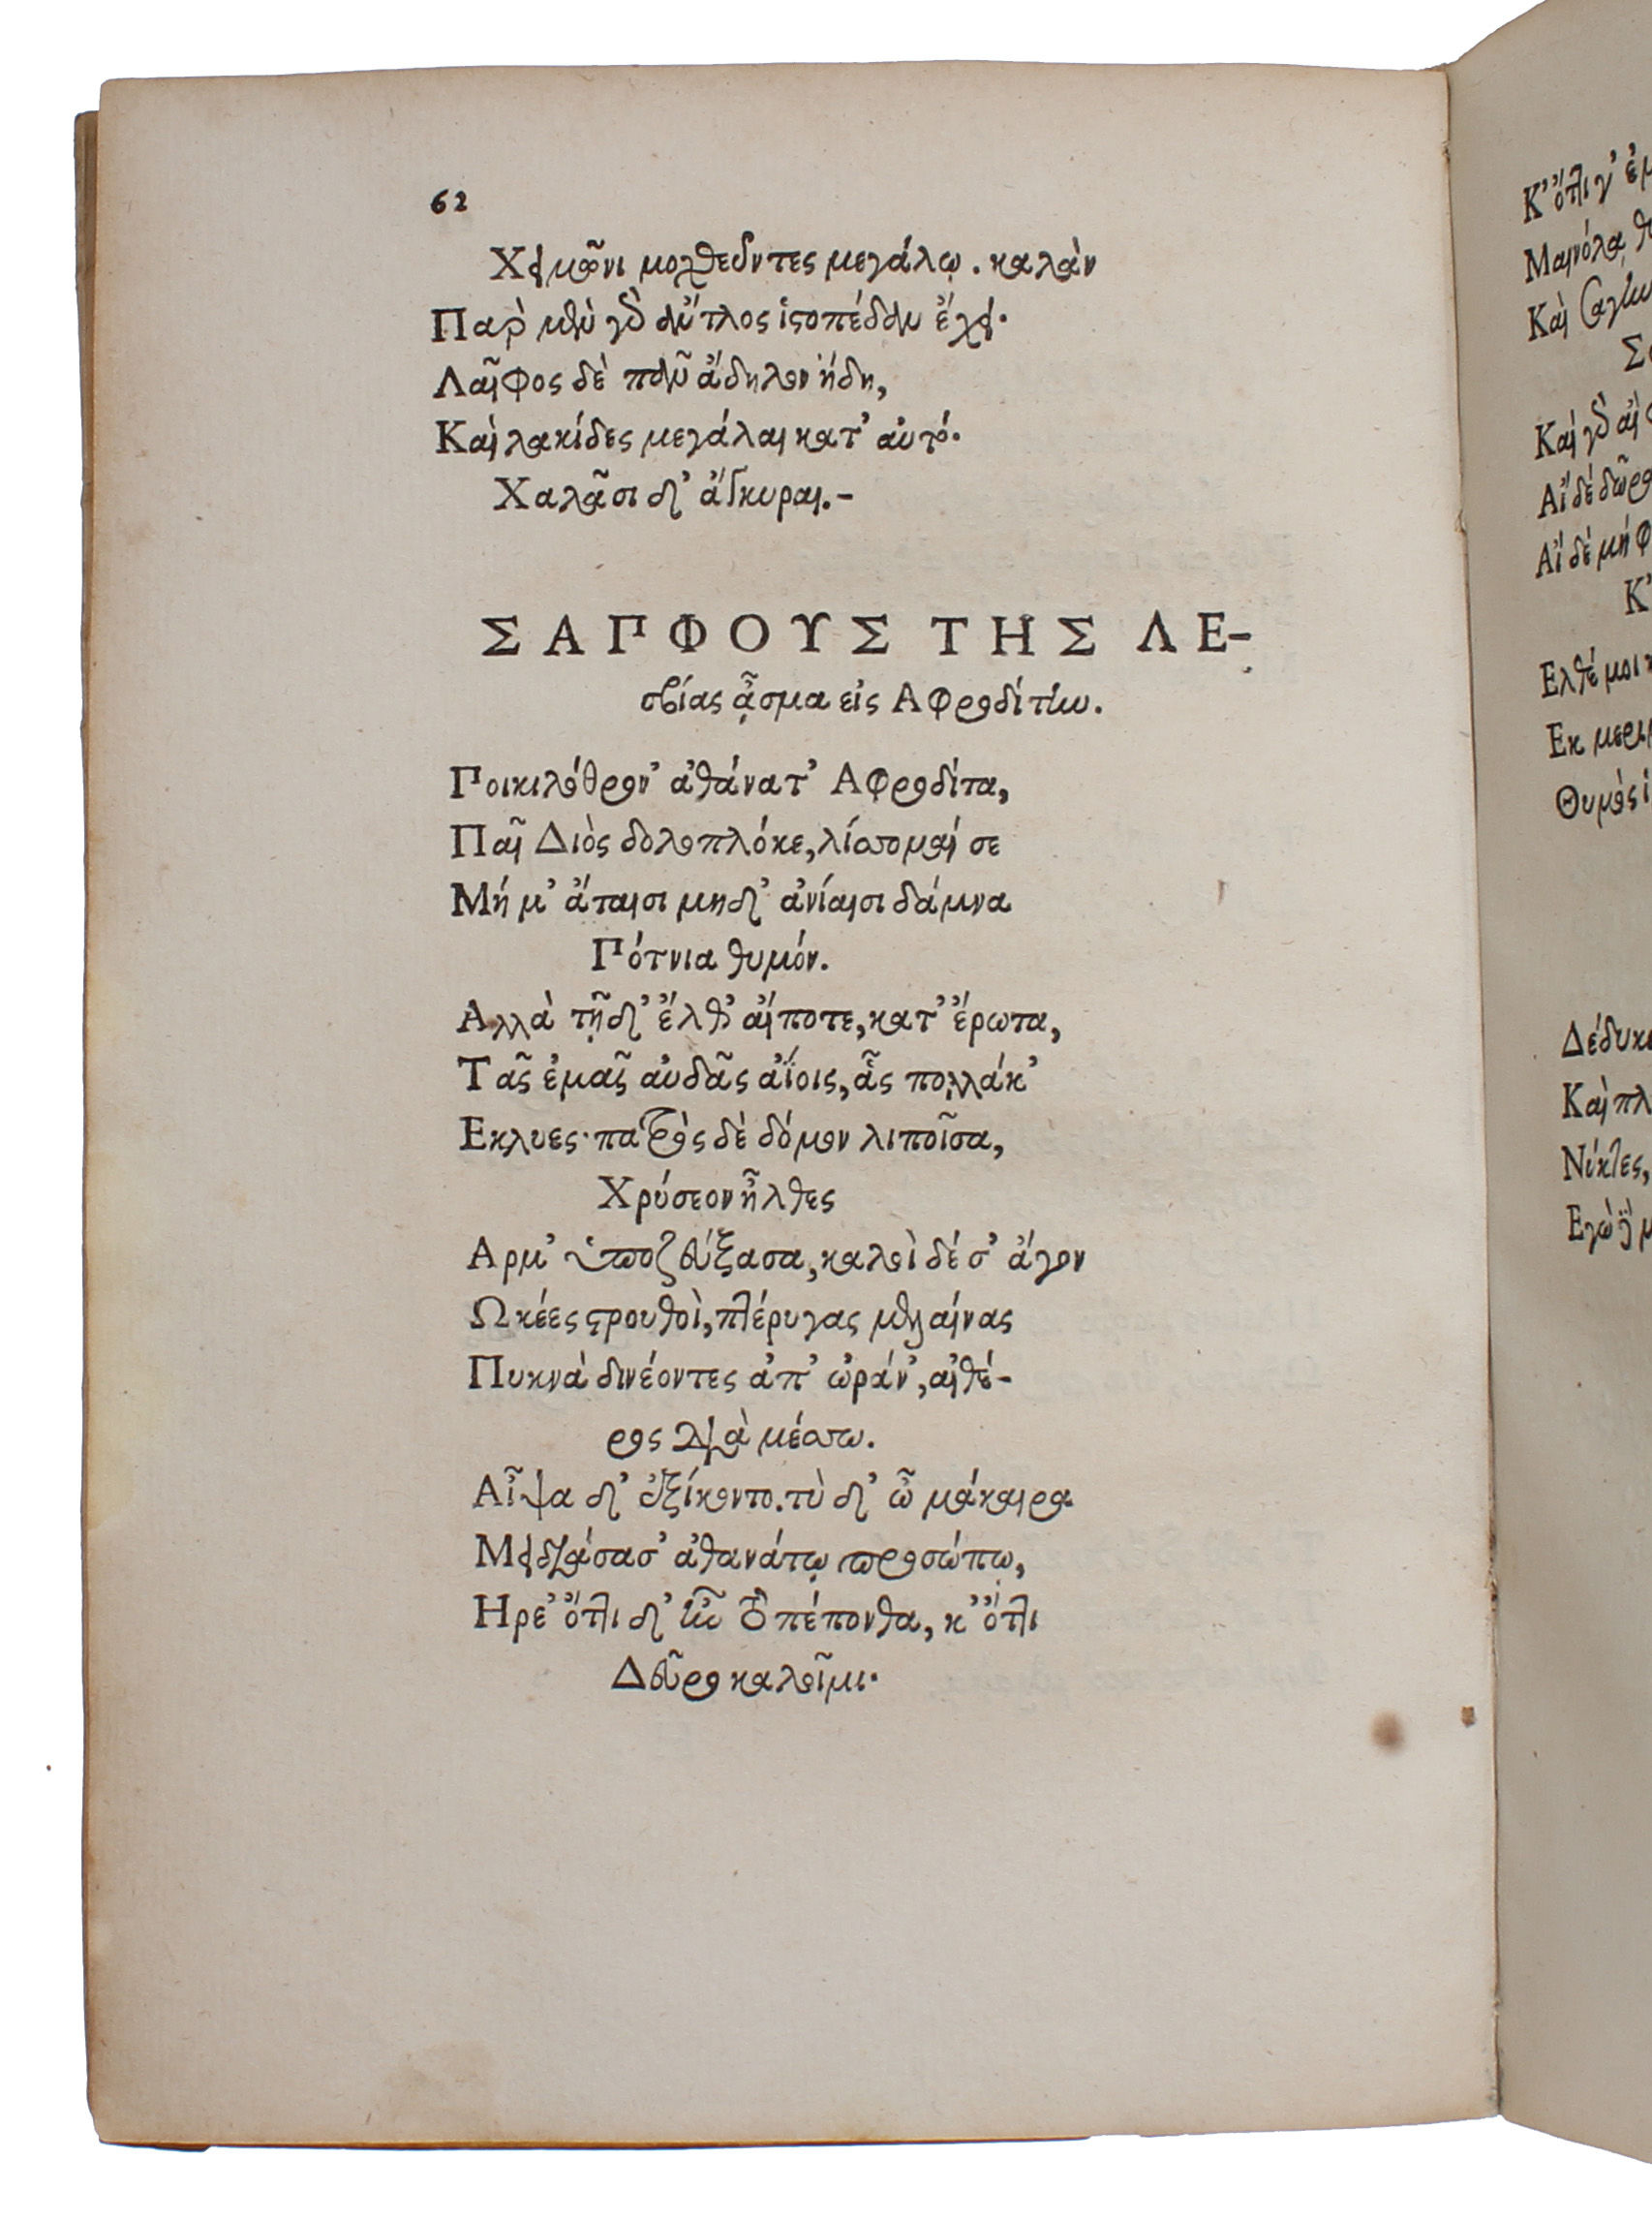 62
Χειμῶνι μοχθεῦντες μεγάλῳ. καλὰν
Παρ̀ μὲν γὰρ ἄντλος ἱστοπέδαν ἔχει.
Λαῖφος δὲ πᾶν ἄδηλον ἤδη,
Καὶ λακίδες μεγάλαι κατ' αὐτό.
Χαλᾶσι δ' ἄγκυραι.-
ΣΑΠΦΟΥΣ ΤΗΣ ΛΕ-
σβίας ᾆσμα εἰς Αφροδίτην.
Ποικιλόθρον' ἀθάνατ' Αφροδίτα,
Παῖ Διὸς δολοπλόκε, λίσσομαί σε
Μή μ' ἄταισι μηδ' ἀνίαισι δάμνα
Πότνια θυμόν.
Αλλὰ τῇδ' ἔλθ' αἴποτε, κατ' ἔρωτα,
Τᾶς ἐμᾶς αὐδᾶς ἀΐοις, ἇς πολλάκ'
Εκλυες· πατρὸς δὲ δόμον λιποῖσα,
Χρύσεον ἦλθες
Αρμ' ὑποζεύξασα, καλοὶ δέ σ' ἄγον
Ωκέες στρουθοὶ, πτέρυγας μελαίνας
Πυκνὰ δινέοντες ἀπ' ὠράν', αἰθέ-
ρος διὰ μέσσω.
Αἶψα δ' ἐξίκοντο. τὺ δ' ὦ μάκαιρα
Μειδιάσασ' ἀθανάτῳ προσώπῳ,
Ηρε' ὅττι δ' ἦν τὸ πέπονθα, κ' ὅττι
Δεῦρο καλοῖμι.
Κ' ὅττι γ'
Μαινόλᾳ
Καὶ
Καὶ γὰρ αἰ
Αἰ δὲ δῶρα
Αἰ δὲ μὴ φ
Κ'
Ελθέ μοι
Εκ μερι
Θυμὸς ἱ
Δέδυκε
Καὶ πλ
Νύκτες,
Εγὼ δὲ μ